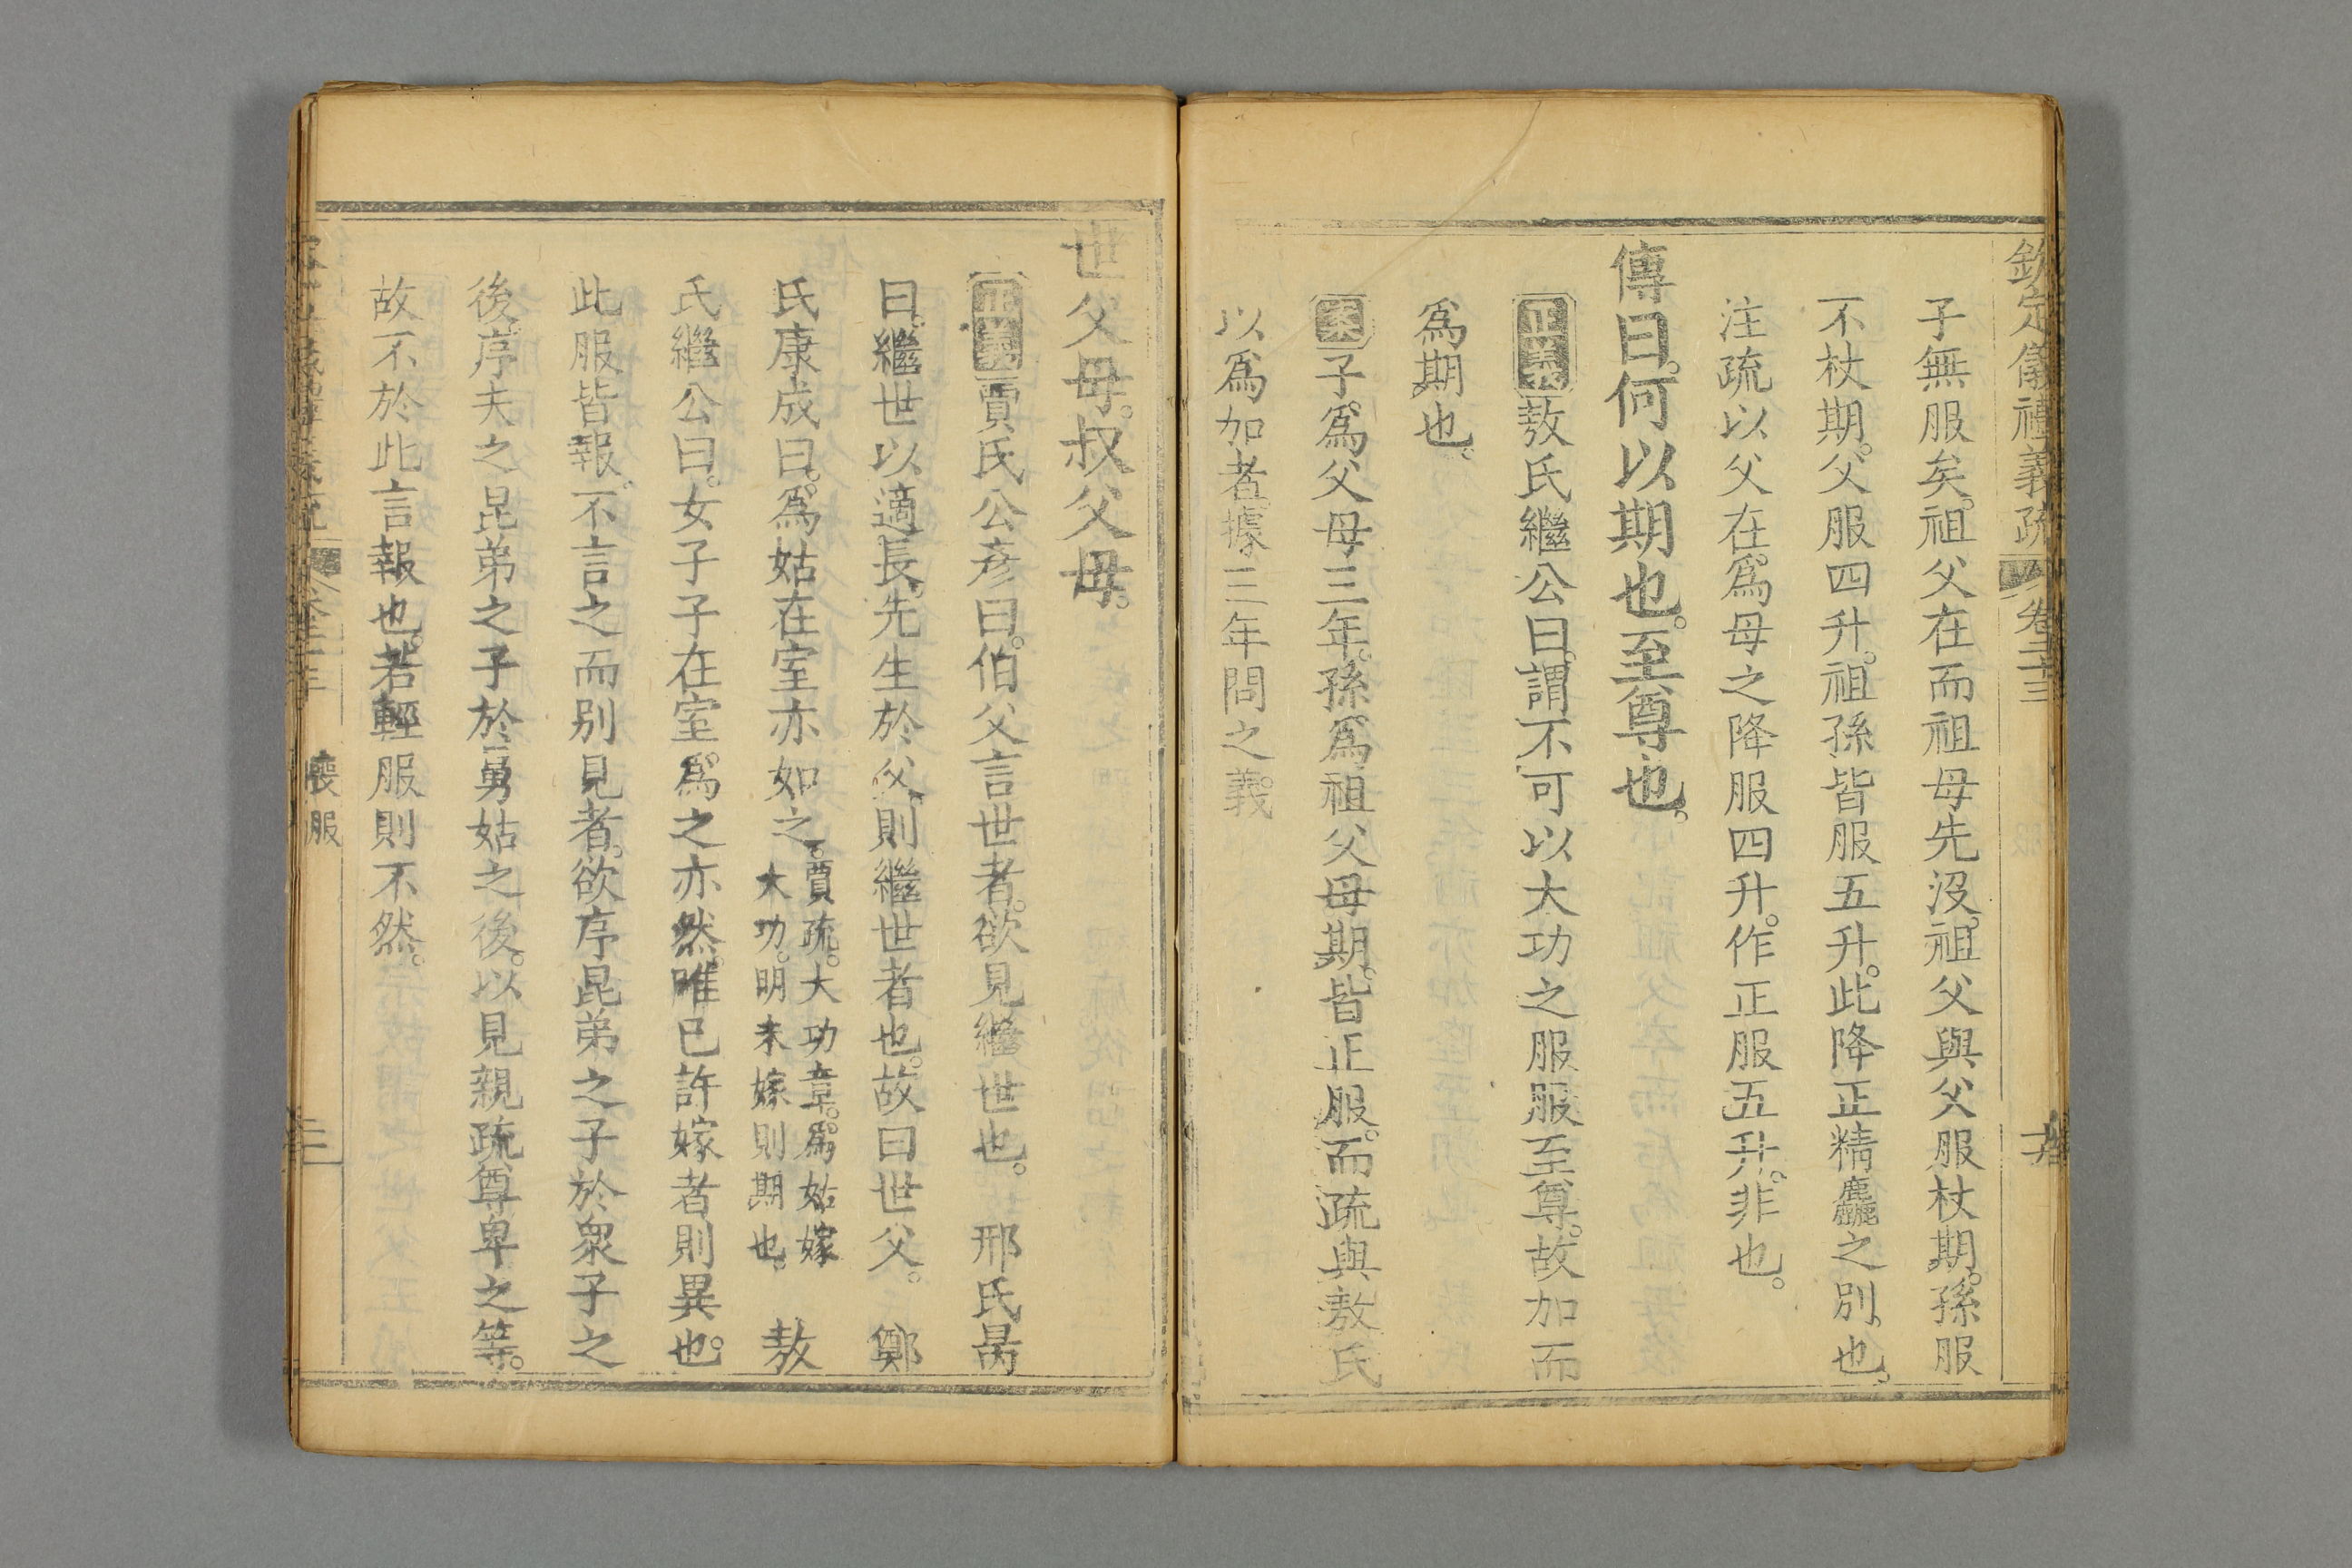 欽定儀禮義疏 卷二十三
子無服矣。祖父在而祖母先沒。祖父與父服杖期。孫服
不杖期。父服四升。祖孫皆服五升。此降正精麤之別也。
注疏以父在爲母之降服四升。作正服五升。非也。
傳曰。何以期也。至尊也。
正義敖氏繼公曰。謂不可以大功之服服至尊。故加而
爲期也。
案子爲父母三年。孫爲祖父母期。皆正服。而疏與敖氏
以爲加者。據三年問之義。
世父母。叔父母。
正義賈氏公彥曰。伯父言世者。欲見繼世也。 邢氏昺
曰。繼世以適長。先生於父。則繼世者也。故曰世父。 鄭
氏康成曰。爲姑在室亦如之。賈疏。大功章。爲姑嫁大功。明未嫁則期也。 敖
氏繼公曰。女子子在室。爲之亦然。唯已許嫁者則異也。
此服皆報。不言之而别見者。欲序昆弟之子於衆子之
後。序夫之昆弟之子於舅姑之後。以見親疏尊卑之等。
故不於此言報也。若輕服則不然。
喪服